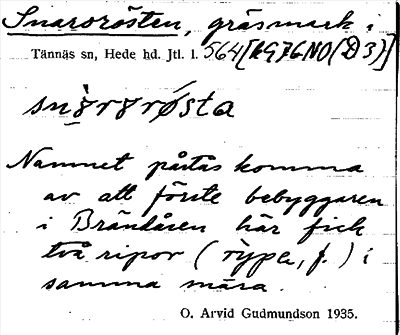 Snarorösten, gräsmark i
Tännäs sn, Hede hd. Jtl. l. 564 [kG76NO(D3)]
Namnet påstås komma
av att förste bebyggaren
i Brändåsen här fick
två ripor (rỳpa, f.) i
samma snara.
O. Arvid Gudmundson 1935.